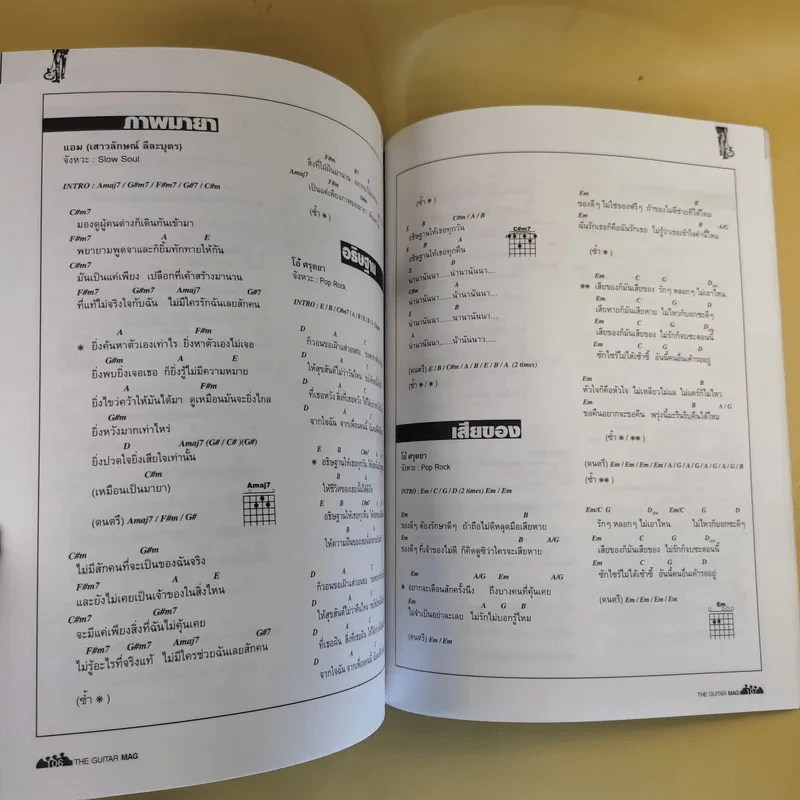 ภาพมายา
แอม (เสาวลักษณ์ ลีละบุตร)
จังหวะ : Slow Soul
INTRO : Amaj7 / G#m7 / F#m7 / G#7 / C#m
C#m7
มองดูผู้คนต่างก็เดินกันเข้ามา
F#m7 A E
พยายามพูดจาและก็ยิ้มทักทายให้กัน
C#m7
มันเป็นแค่เพียง เปลือกที่เค้าสร้างมานาน
F#m7 G#m7 Amaj7 G#7
ที่แท้ไม่จริงใจกับฉัน ไม่มีใครรักฉันเลยสักคน
A F#m
* ยิ่งค้นหาตัวเองเท่าไร ยิ่งหาตัวเองไม่เจอ
G#m A E
ยิ่งพบยิ่งเจอเธอ ก็ยิ่งรู้ไม่มีความหมาย
A F#m
ยิ่งไขว่คว้าให้มันได้มา ดูเหมือนมันจะยิ่งไกล
G#m
ยิ่งหวังมากเท่าไหร่
D Amaj7 (G# / C# )(G#)
ยิ่งปวดใจยิ่งเสียใจเท่านั้น
C#m
(เหมือนเป็นมายา)
Amaj7
(ดนตรี) Amaj7 / F#m / G#
C#m G#m
ไม่มีสักคนที่จะเป็นของฉันจริง
F#m7 A E
และยังไม่เคยเป็นเจ้าของในสิ่งไหน
C#m7 G#m7
จะมีแค่เพียงสิ่งที่ฉันไม่คุ้นเคย
F#m7 G#m7 Amaj7 G#7
ไม่รู้อะไรที่จริงแท้ ไม่มีใครช่วยฉันเลยสักคน
(ซ้ำ *)
F#m B7 A
สิ่งที่ไฝ่ฝันมานาน
Amaj7 F#m
เป็นแค่เพียงภาพมายา
(ซ้ำ *)
อธิษฐาน
โอ้ ศรุตยา
จังหวะ : Pop Rock
INTRO : E / B / C#m7 / A / B / E / B / A
D A
ก็วอนขอเฝ้าแต่วอนขอ
D A
ให้สุขสันต์ไม่ว่าวันไหน
D A
ที่เธอหวัง สิ่งที่เธอหวัง
D A
จากใจฉัน จากเพื่อนคนนี้
E B C#m7 A
* อธิษฐานให้เธอทุกวัน
E B
ให้ชีวิตของเธอนั้นได้
E B C#m7
อธิษฐานให้เธอทุกคืน
E B
ให้ความฝันของเธอ
D A
ก็วอนขอเฝ้าแต่วอนขอ
D A
ให้สุขสันต์ไม่ว่าคืนไหน
D A
ที่เธอฝัน สิ่งที่เธอฝัน
D A
จากใจฉัน จากเพื่อนคนนี้
106 THE GUITAR MAG
(ซ้ำ *)
E B C#m / A / B
อธิษฐานให้เธอทุกวัน
E B A
อธิษฐานให้เธอทุกคืน
C#m7
E B
นานานันนา.....น่านานันนา...
C#m A
นานานันนา.....น่านานันนา...
E B
นานานันนา.....น่านานันนา...
A
นานานันนา.....น้านานันนาว....
(ดนตรี) E / B / C#m / A / B / E / B / A (2 times)
(ซ้ำ * / *)
เสียของ
โอ้ ศรุตยา
จังหวะ : Pop Rock
INTRO : Em / C / G / D (2 times) Em / Em
Em B
ของดีๆ ต้องรักษาดีๆ ถ้าถือไม่ดีหลุดมือเสียหาย
Em B
ของดีๆ ที่เจ้าของไม่ดี ก็คิดดูซิว่าใครจะเสียหาย
Em A/G Em A/G
* อยากจะเตือนสักครั้งนึง ถึงบางคนที่คุ้นเคย
Em A G B
ไม่จำเป็นอย่าละเลย ไม่รักไม่บอกรู้ไหม
(ดนตรี) Em / Em
Em B
ของดีๆ ไม่ใช่ของฟรีๆ ถ้าของไม่ดีช่วยทีได้ไหม
Em B A/G
ฉันรักเธอก็คือฉันรักเธอ ไม่รู้ว่าเธอเข้าใจคำนี้ไหม
(ซ้ำ *)
Em C G D
** เสียของก็มันเสียของ รักๆ หลอกๆ ไม่เอาไหน
Em C G D
เสียหายก็มันเสียหาย ไม่ไหวก็บอกซะดีๆ
Em C G D
เสียของก็มันเสียของ ไม่รักก็จบซะตอนนี้
Em C G D
ซักไซร้ไม่ได้เซ้าซี้ อันนี้คนอื่นเค้ารออยู่
Em B
หัวใจก็คือหัวใจ ไม่เหลียวไม่แล ไม่แคร์ก็ไม่ไหว
Em B A / G
ขอคืนอยากจะขอคืน พรุ่งนี้มะรืนรีบคืนได้ไหม
(ซ้ำ * / **)
(ดนตรี) Em / Em / Em / Em / A / G / A / G / A / G / A / G / B
(ซ้ำ **)
Em/C G D Em/C G D
รักๆ หลอกๆ ไม่เอาไหน ไม่ไหวก็บอกซะดีๆ
Em C G D
เสียของก็มันเสียของ ไม่รักก็จบซะตอนนี้
Em C G D
ซักไซร้ไม่ได้เซ้าซี้ อันนี้คนอื่นเค้ารออยู่
(ดนตรี) Em / Em / Em / Em
Em
THE GUITAR MAG 107